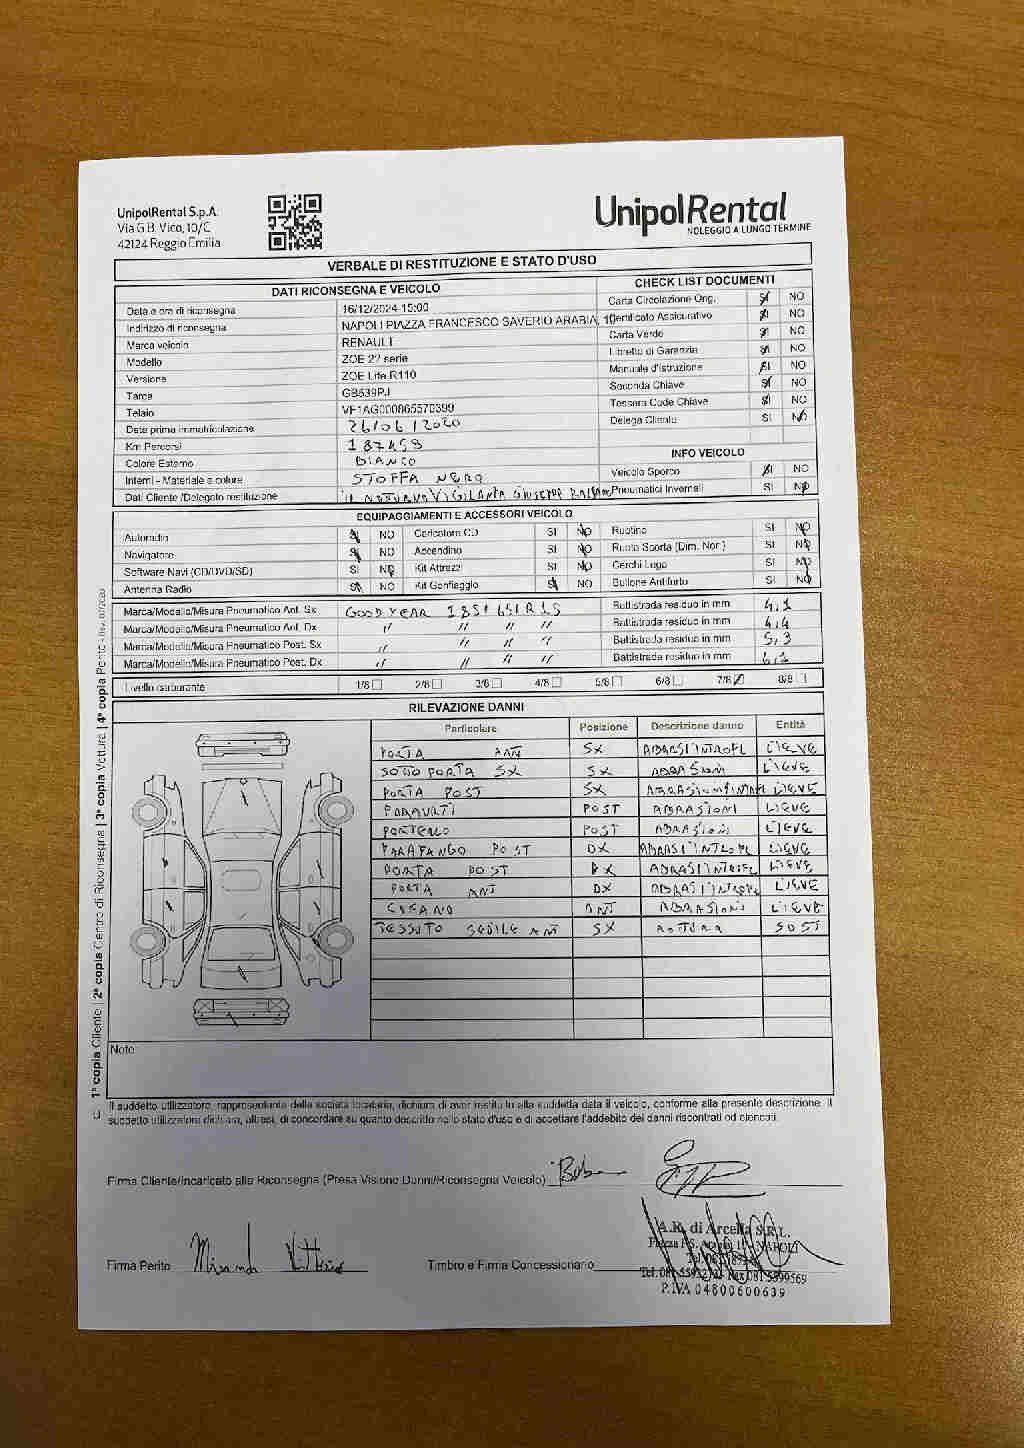 UnipolRental S.p.A.
Via G.B. Vico, 10/C
42124 Reggio Emilia
UnipolRental
NOLEGGIO A LUNGO TERMINE
VERBALE DI RESTITUZIONE E STATO D'USO
DATI RICONSEGNA E VEICOLO
Data e ora di riconsegna 16/12/2024-15:00
Indirizzo di riconsegna NAPOLI PIAZZA FRANCESCO SAVERIO ARABIA,
Marca veicolo RENAULT
Modello ZOE 2ª serie
Versione ZOE Life R110
Targa GB539PJ
Telaio VF1AG000865570399
Data prima immatricolazione 26/06/2020
Km Percorsi 187458
Colore Esterno BIANCO
Interni - Materiale e colore STOFFA NERO
Dati Cliente /Delegato restituzione VIGILANTA GIUSEPPE
CHECK LIST DOCUMENTI
Carta Circolazione Orig. SI NO
Certificato Assicurativo SI NO
Carta Verde SI NO
Libretto di Garanzia SI NO
Manuale d'istruzione SI NO
Seconda Chiave SI NO
Tessera Code Chiave SI NO
Delega Cliente SI NO
INFO VEICOLO
Veicolo Sporco SI NO
Pneumatici Invernali SI NO
EQUIPAGGIAMENTI E ACCESSORI VEICOLO
Autoradio SI NO Caricatore CD SI NO Ruotino SI NO
Navigatore SI NO Accendino SI NO Ruota Scorta (Dim. Nor.) SI NO
Software Navi (CD/DVD/SD) SI NO Kit Attrezzi SI NO Cerchi Lega SI NO
Antenna Radio SI NO Kit Gonfiaggio SI NO Bullone Antifurto SI NO
Marca/Modello/Misura Pneumatico Ant. Sx GOODYEAR 185/65/R15 Battistrada residuo in mm 4,1
Marca/Modello/Misura Pneumatico Ant. Dx // // // // Battistrada residuo in mm 4,4
Marca/Modello/Misura Pneumatico Post. Sx // // // // Battistrada residuo in mm 5,3
Marca/Modello/Misura Pneumatico Post. Dx // // // // Battistrada residuo in mm
Livello carburante 1/8 2/8 3/8 4/8 5/8 6/8 7/8 8/8
RILEVAZIONE DANNI
Particolare Posizione Descrizione danno Entità
PORTA ANT SX ABRASI'INTROFL LIEVE
SOTTO PORTA SX SX ABRASIONI LIEVE
PORTA POST SX LIEVE
PARAURTI POST ABRASIONI LIEVE
PORTELLO POST ABRASIONI LIEVE
PARAFANGO POST DX ABRASI'INTROFL LIEVE
PORTA POST DX ABRASI'INTROFL LIEVE
PORTA ANT DX ABRASI'INTROFL LIEVE
COFANO ANT ABRASIONI LIEVE
TESSUTO SEDILE ANT SX ROTTURA SOST
Note:
Il suddetto utilizzatore, rappresentante della società locataria, dichiara di aver restituito alla suddetta data il veicolo, conforme alla presente descrizione. Il
suddetto utilizzatore dichiara, altresì, di concordare su quanto descritto nello stato d'uso e di accettare l'addebito dei danni riscontrati ed elencati.
Firma Cliente/Incaricato alla Riconsegna (Presa Visione Danni/Riconsegna Veicolo)
Firma Perito Miranda Vittorio
Timbro e Firma Concessionario
A.R. di Arcella S.R.L.
P.IVA 04800600639
1ª copia Cliente | 2ª copia Centro di Riconsegna | 3ª copia Vettura | 4ª copia Perito